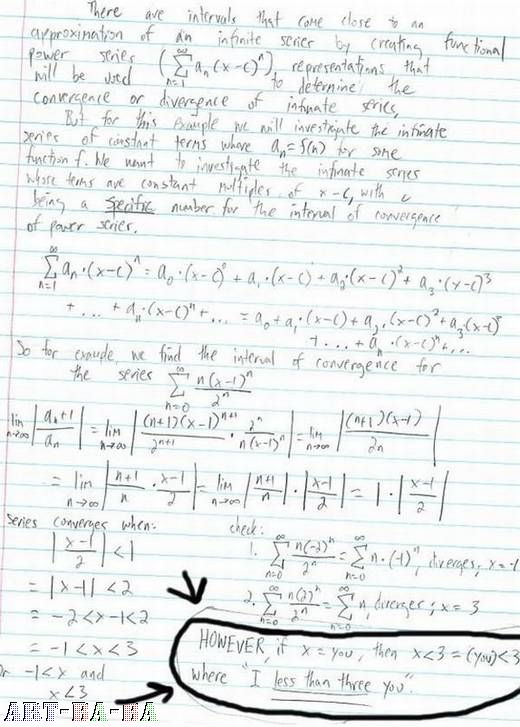 There are intervals that come close to an
approximation of an infinite series by creating functional
power series (∑_{n=1}^{∞} a_n(x-c)^n) representations that
will be used to determine the
convergence or divergence of infinate series,
But for this example we will investigate the infinate
series of constant terms where a_n = f(n) for some
function f. We want to investigate the infinate series
whose terms are constant multiples of x-c, with c
being a specific number for the interval of convergence
of power series.
∑_{n=1}^{∞} a_n·(x-c)^n = a_0·(x-c)^0 + a_1·(x-c) + a_2·(x-c)^2 + a_3·(x-c)^3
+ ... + a_n·(x-c)^n + ... = a_0 + a_1·(x-c) + a_2·(x-c)^2 + a_3(x-c)^3
+ ... + a_n·(x-c)^n + ...
So for example, we find the interval of convergence for
the series ∑_{n=0}^{∞} n(x-1)^n / 2^n
lim_{n→∞} |a_n+1 / a_n| = lim_{n→∞} |(n+1)(x-1)^{n+1} / 2^{n+1} · 2^n / n(x-1)^n| = lim_{n→∞} |(n+1)(x-1) / 2n|
= lim_{n→∞} |n+1 / n · x-1 / 2| = lim_{n→∞} |n+1 / n| · |x-1 / 2| = 1 · |x-1 / 2|
Series converges when:
|x-1 / 2| < 1
= |x-1| < 2
= -2 < x-1 < 2
= -1 < x < 3
Or -1 < x and
x < 3
check:
1. ∑_{n=0}^{∞} n(-2)^n / 2^n = ∑_{n=0}^{∞} n·(-1)^n, diverges; x = -1
2. ∑_{n=0}^{∞} n(2)^n / 2^n = ∑_{n=0}^{∞} n, diverges; x = 3
HOWEVER, if x = you, then x<3 = (you)<3
where "I less than three you".
ART-BA-BA